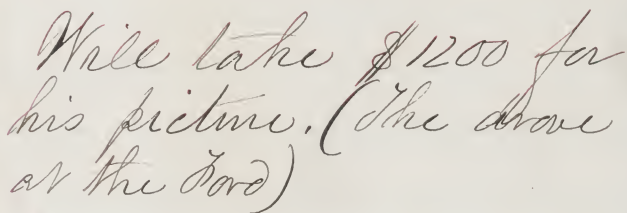 Will take $1200 for
his picture. (The drove
at the Ford)